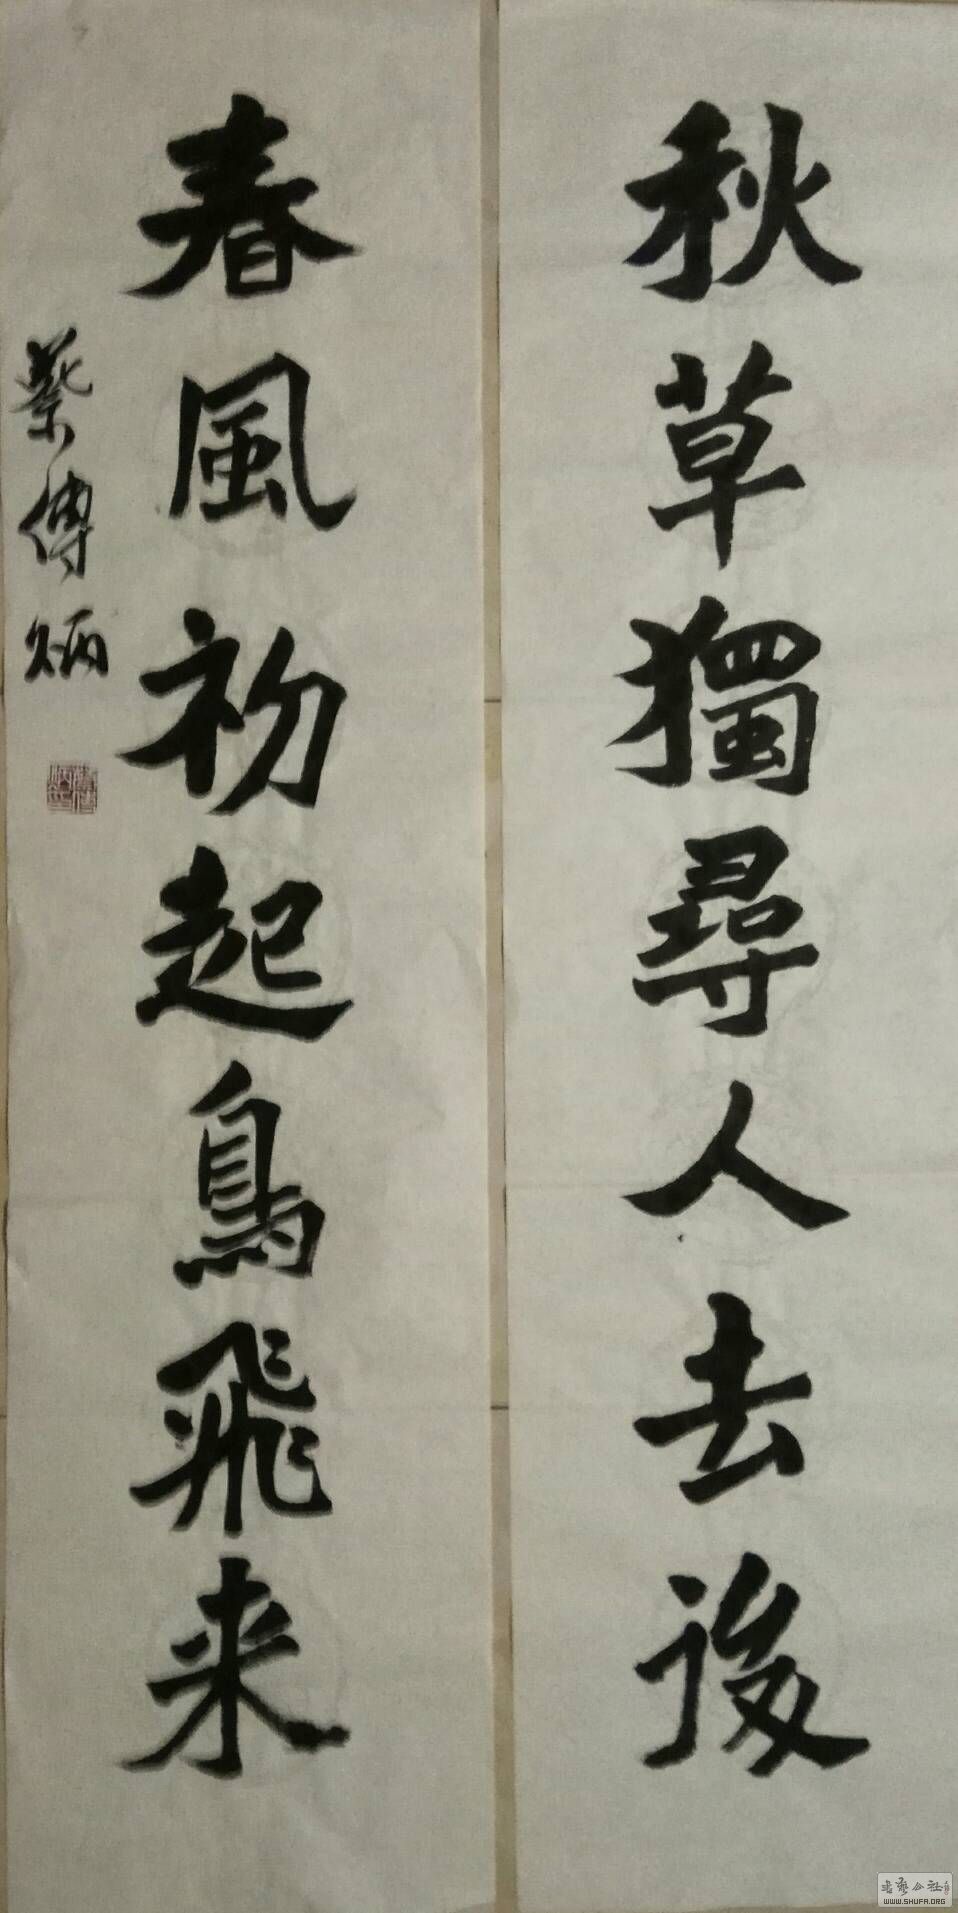 秋草獨尋人去後
春風初起鳥飛来
蔡傳炳
书艺公社
WWW.SHUFA.ORG